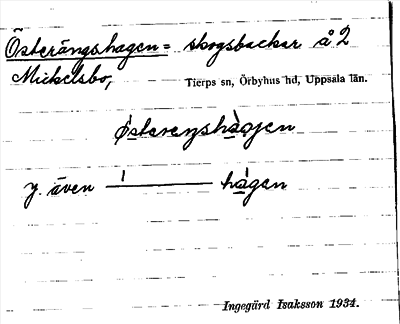 Österängshagen = skogsbackar å 2
Mickelsbo, Tierps sn, Örbyhus hd, Uppsala län.
østereŋshàgen
y. även hàgen
Ingegärd Isaksson 1934.